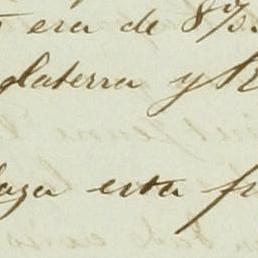 era de 8%
glaterra y R
aza esta f